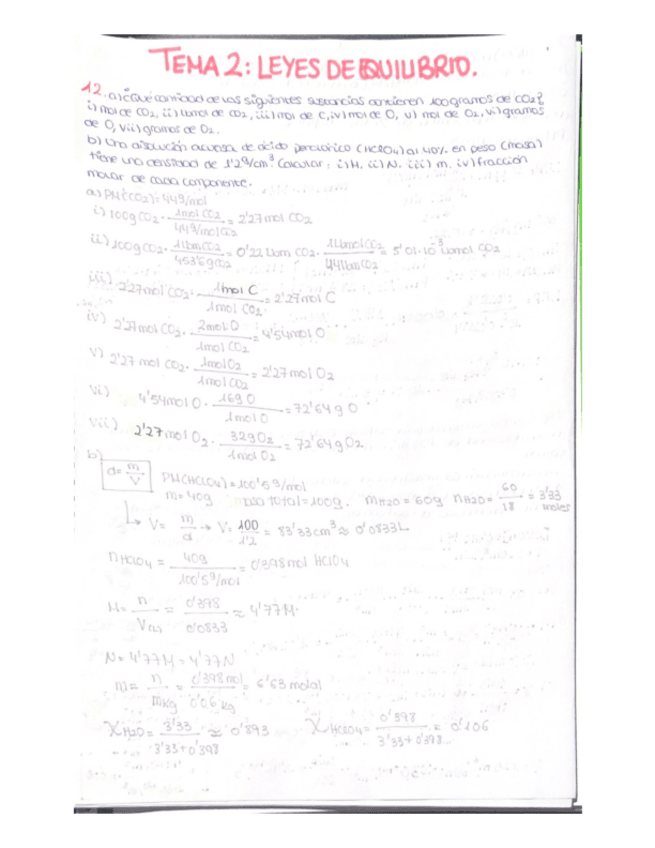 TEMA 2: LEYES DE EQUILIBRIO.
12. a) ¿Qué cantidad de las siguientes sustancias contienen 100 gramos de CO2?
i) mol de CO2, ii) Lbmol de CO2, iii) mol de C, iv) mol de O, v) mol de O2, vi) gramos
de O, vii) gramos de O2.
b) Una disolución acuosa de ácido perclórico (HClO4) al 40% en peso (masa)
tiene una densidad de 1'2 g/cm³. Calcular: i) M, ii) N, iii) m, iv) fracción
molar de cada componente.
a) PM(CO2) = 44g/mol
i) 100g CO2 · 1mol CO2 / 44g/mol CO2 = 2'27 mol CO2
ii) 100g CO2 · 1Lbm CO2 / 453'6g CO2 = 0'22 Lbm CO2 · 1Lbmol CO2 / 44Lbm CO2 = 5'01·10⁻³ Lbmol CO2
iii) 2'27 mol CO2 · 1mol C / 1mol CO2 = 2'27 mol C
iv) 2'27 mol CO2 · 2mol O / 1mol CO2 = 4'54 mol O
v) 2'27 mol CO2 · 1mol O2 / 1mol CO2 = 2'27 mol O2
vi) 4'54 mol O · 16g O / 1mol O = 72'64 g O
vii) 2'27 mol O2 · 32g O2 / 1mol O2 = 72'64 g O2
b) d = m / V PM(HClO4) = 100'5 g/mol
m = 40g masa total = 100g. mH2O = 60g nH2O = 60 / 18 = 3'33 moles
↳ V = m / d → V = 100 / 1'2 = 83'33 cm³ ≈ 0'0833L
nHClO4 = 40g / 100'5 g/mol = 0'398 mol HClO4
M = n / V(L) = 0'398 / 0'0833 ≈ 4'77 M.
N = 4'77M = 4'77N
m = n / mKg = 0'398 mol / 0'06 kg = 6'63 molal
XH2O = 3'33 / 3'33 + 0'398 ≈ 0'893 XHClO4 = 0'398 / 3'33 + 0'398 = 0'106